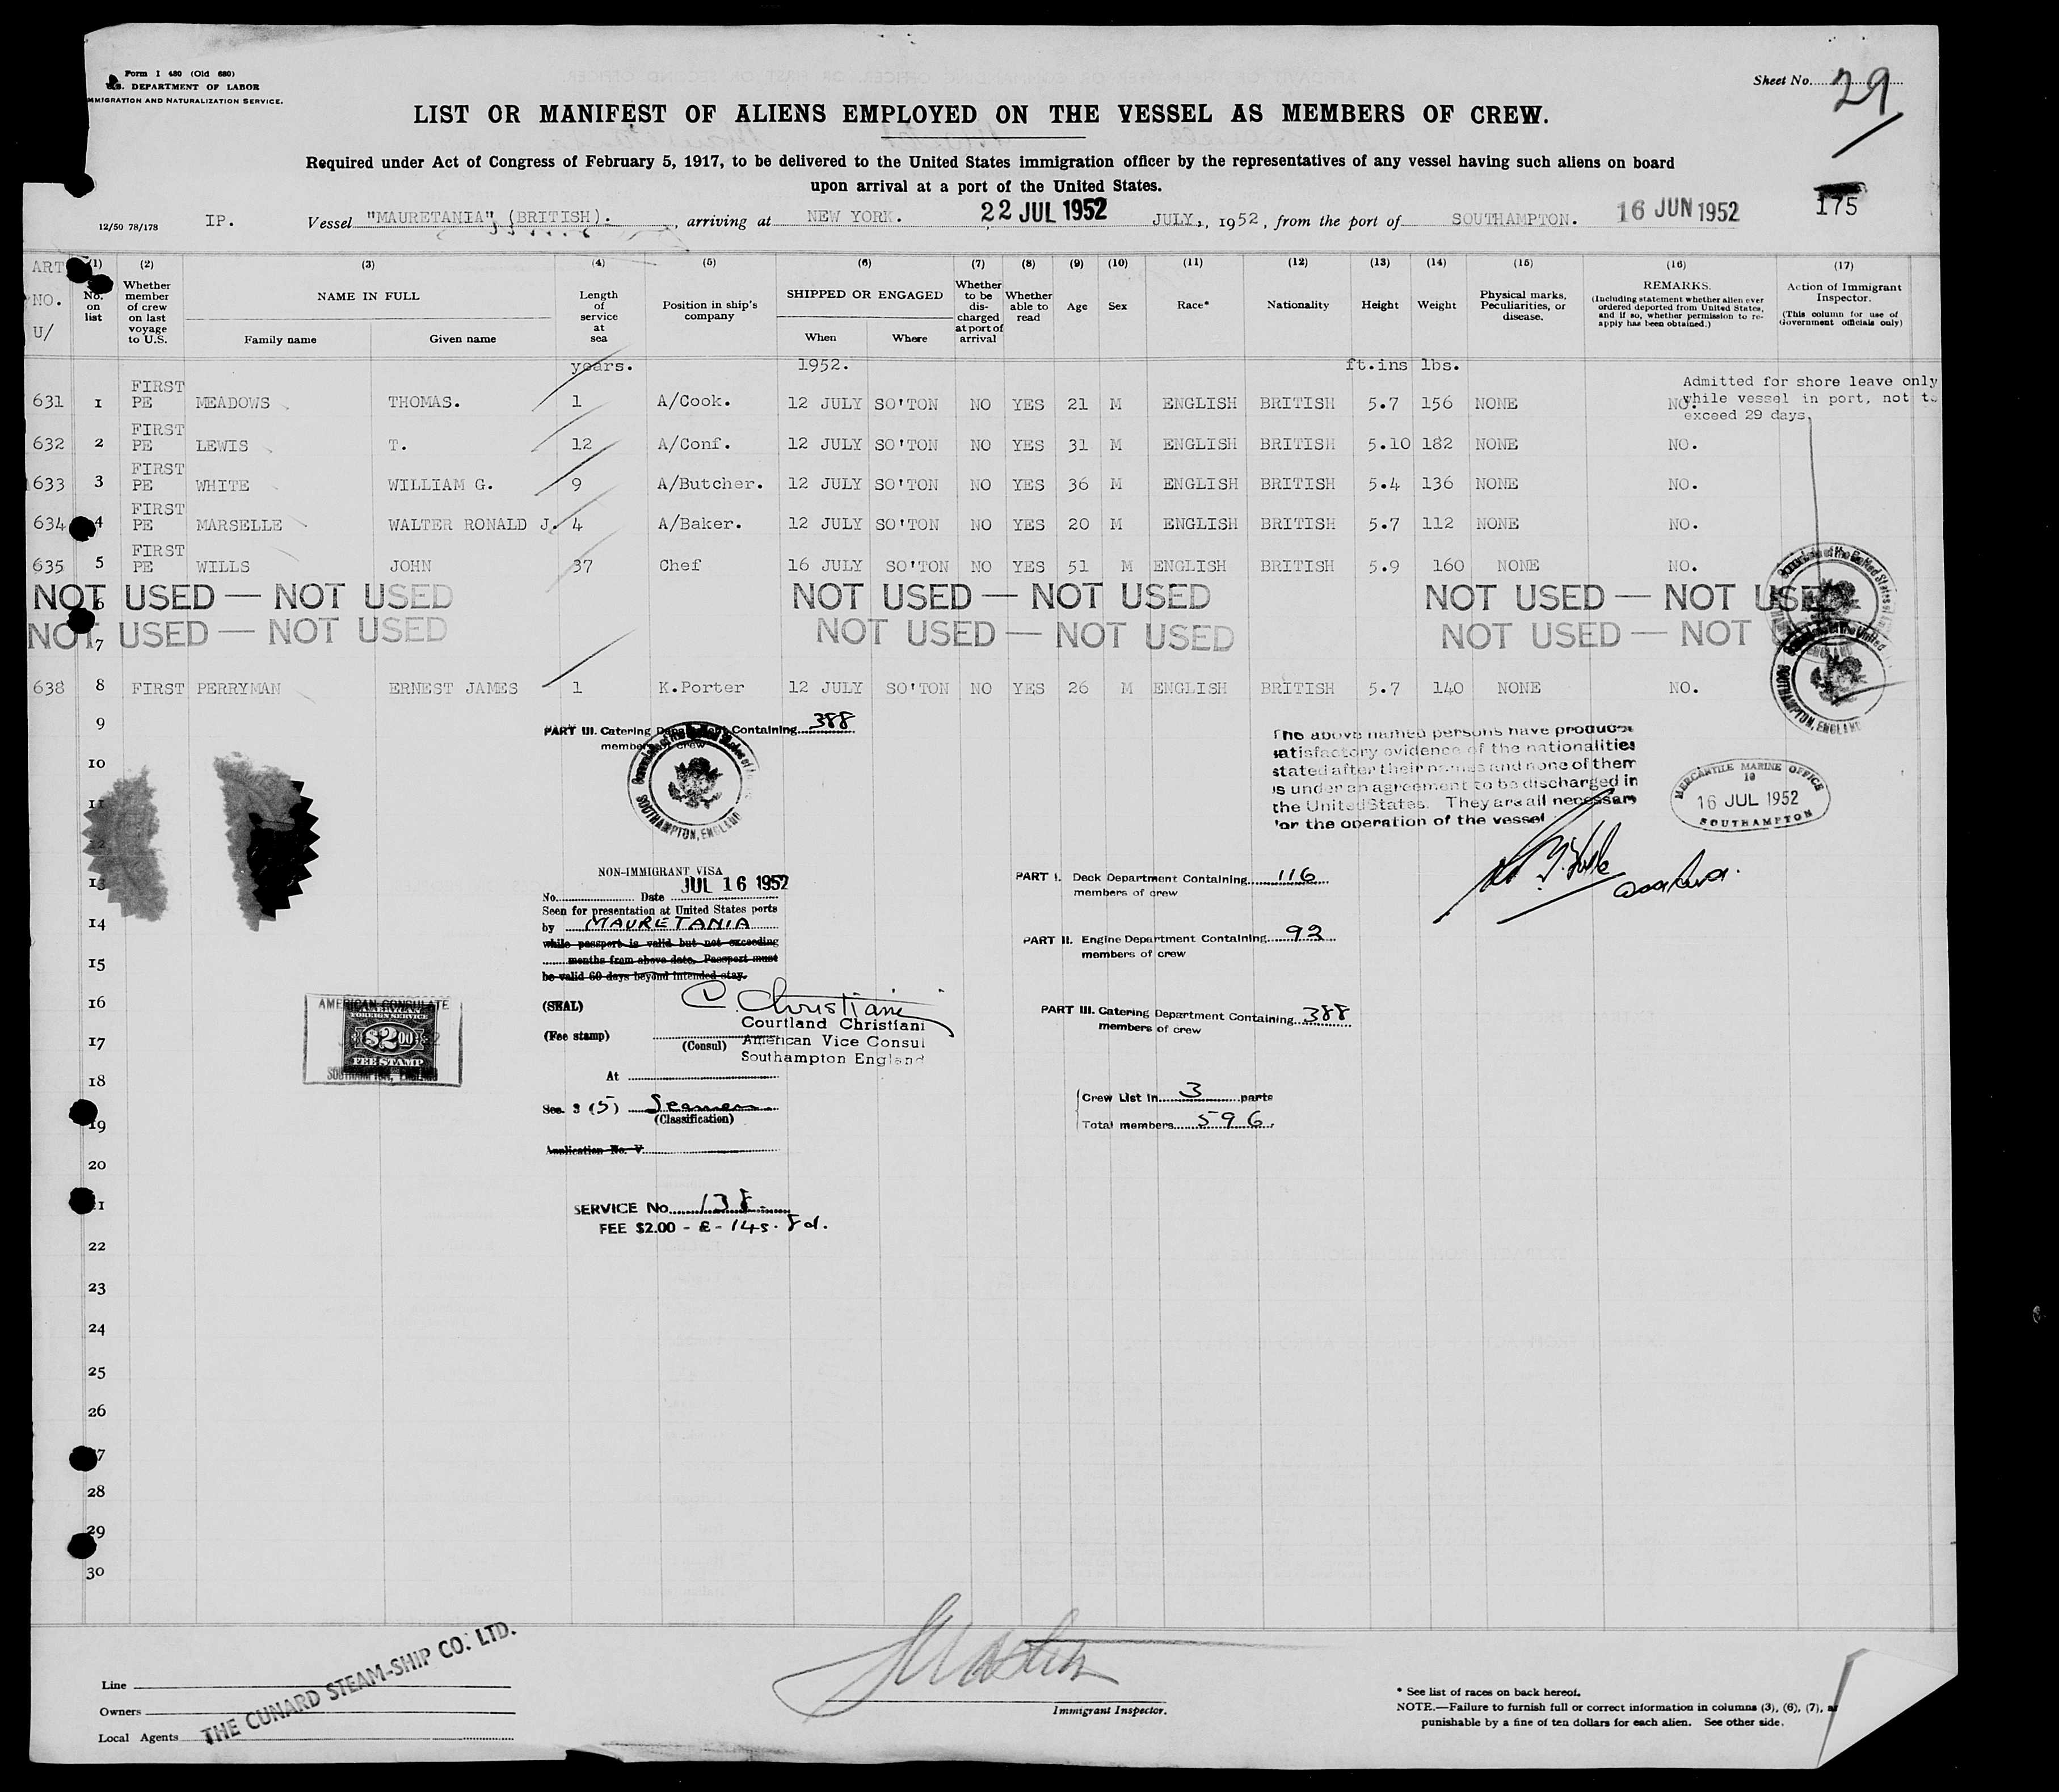 Form I 480 (Old 680)
U.S. DEPARTMENT OF LABOR
IMMIGRATION AND NATURALIZATION SERVICE.
Sheet No. 29
LIST OR MANIFEST OF ALIENS EMPLOYED ON THE VESSEL AS MEMBERS OF CREW.
Required under Act of Congress of February 5, 1917, to be delivered to the United States immigration officer by the representatives of any vessel having such aliens on board
upon arrival at a port of the United States.
175
12/50 78/178 IP. Vessel "MAURETANIA" (BRITISH). , arriving at NEW YORK. 22 JUL 1952 JULY, , 1952, from the port of SOUTHAMPTON. 16 JUN 1952
ART NO. U/
(1) No. on list
(2) Whether member of crew on last voyage to U.S.
(3) NAME IN FULL Family name Given name
(4) Length of service at sea
(5) Position in ship's company
(6) SHIPPED OR ENGAGED When Where
(7) Whether to be discharged at port of arrival
(8) Whether able to read
(9) Age
(10) Sex
(11) Race*
(12) Nationality
(13) Height
(14) Weight
(15) Physical marks, Peculiarities, or disease.
(16) REMARKS. (Including statement whether alien ever ordered deported from United States, and if so, whether permission to re-apply has been obtained.)
(17) Action of Immigrant Inspector. (This column for use of Government officials only)
years. 1952. ft.ins lbs.
Admitted for shore leave only
while vessel in port, not to
exceed 29 days.
631 1 FIRST PE MEADOWS THOMAS. 1 A/Cook. 12 JULY SO'TON NO YES 21 M ENGLISH BRITISH 5.7 156 NONE NO.
632 2 FIRST PE LEWIS T. 12 A/Conf. 12 JULY SO'TON NO YES 31 M ENGLISH BRITISH 5.10 182 NONE NO.
633 3 FIRST PE WHITE WILLIAM G. 9 A/Butcher. 12 JULY SO'TON NO YES 36 M ENGLISH BRITISH 5.4 136 NONE NO.
634 4 FIRST PE MARSELLE WALTER RONALD J. 4 A/Baker. 12 JULY SO'TON NO YES 20 M ENGLISH BRITISH 5.7 112 NONE NO.
635 5 FIRST PE WILLS JOHN 37 Chef 16 JULY SO'TON NO YES 51 M ENGLISH BRITISH 5.9 160 NONE NO.
6 NOT USED — NOT USED NOT USED — NOT USED NOT USED — NOT USED
7 NOT USED — NOT USED NOT USED — NOT USED NOT USED — NOT
638 8 FIRST PERRYMAN ERNEST JAMES 1 K.Porter 12 JULY SO'TON NO YES 26 M ENGLISH BRITISH 5.7 140 NONE NO.
SOUTHAMPTON, ENGLAND
9
10
11
12
13
14
15
16
17
18
19
20
21
22
23
24
25
26
27
28
29
30
PART III. Catering Department Containing 388
members of crew
SOUTHAMPTON, ENGLAND
NON-IMMIGRANT VISA
No. Date JUL 16 1952
Seen for presentation at United States ports
by MAURETANIA
while passport is valid but not exceeding
months from above date. Passport must
be valid 60 days beyond intended stay.
(SEAL) C. Christiani
Courtland Christiani
(Fee stamp)
(Consul) American Vice Consul
Southampton England
At
Sec. 3 (5) Seamen
(Classification)
Application No. V
SERVICE No. 138
FEE $2.00 - £ - 14s. 8d.
AMERICAN CONSULATE
AMERICAN
FOREIGN SERVICE
$2.00
FEE STAMP
SOUTHAMPTON, ENGLAND
The above named persons have produced
satisfactory evidence of the nationalities
stated after their names and none of them
is under an agreement to be discharged in
the United States. They are all necessary
for the operation of the vessel
MERCANTILE MARINE OFFICE
10
16 JUL 1952
SOUTHAMPTON
PART I. Deck Department Containing 116
members of crew
PART II. Engine Department Containing 92
members of crew
PART III. Catering Department Containing 388
members of crew
Crew List in 3 parts
Total members 596.
Line
Owners
Local Agents
THE CUNARD STEAM-SHIP CO. LTD.
Immigrant Inspector.
* See list of races on back hereof.
NOTE.—Failure to furnish full or correct information in columns (3), (6), (7),
punishable by a fine of ten dollars for each alien. See other side.